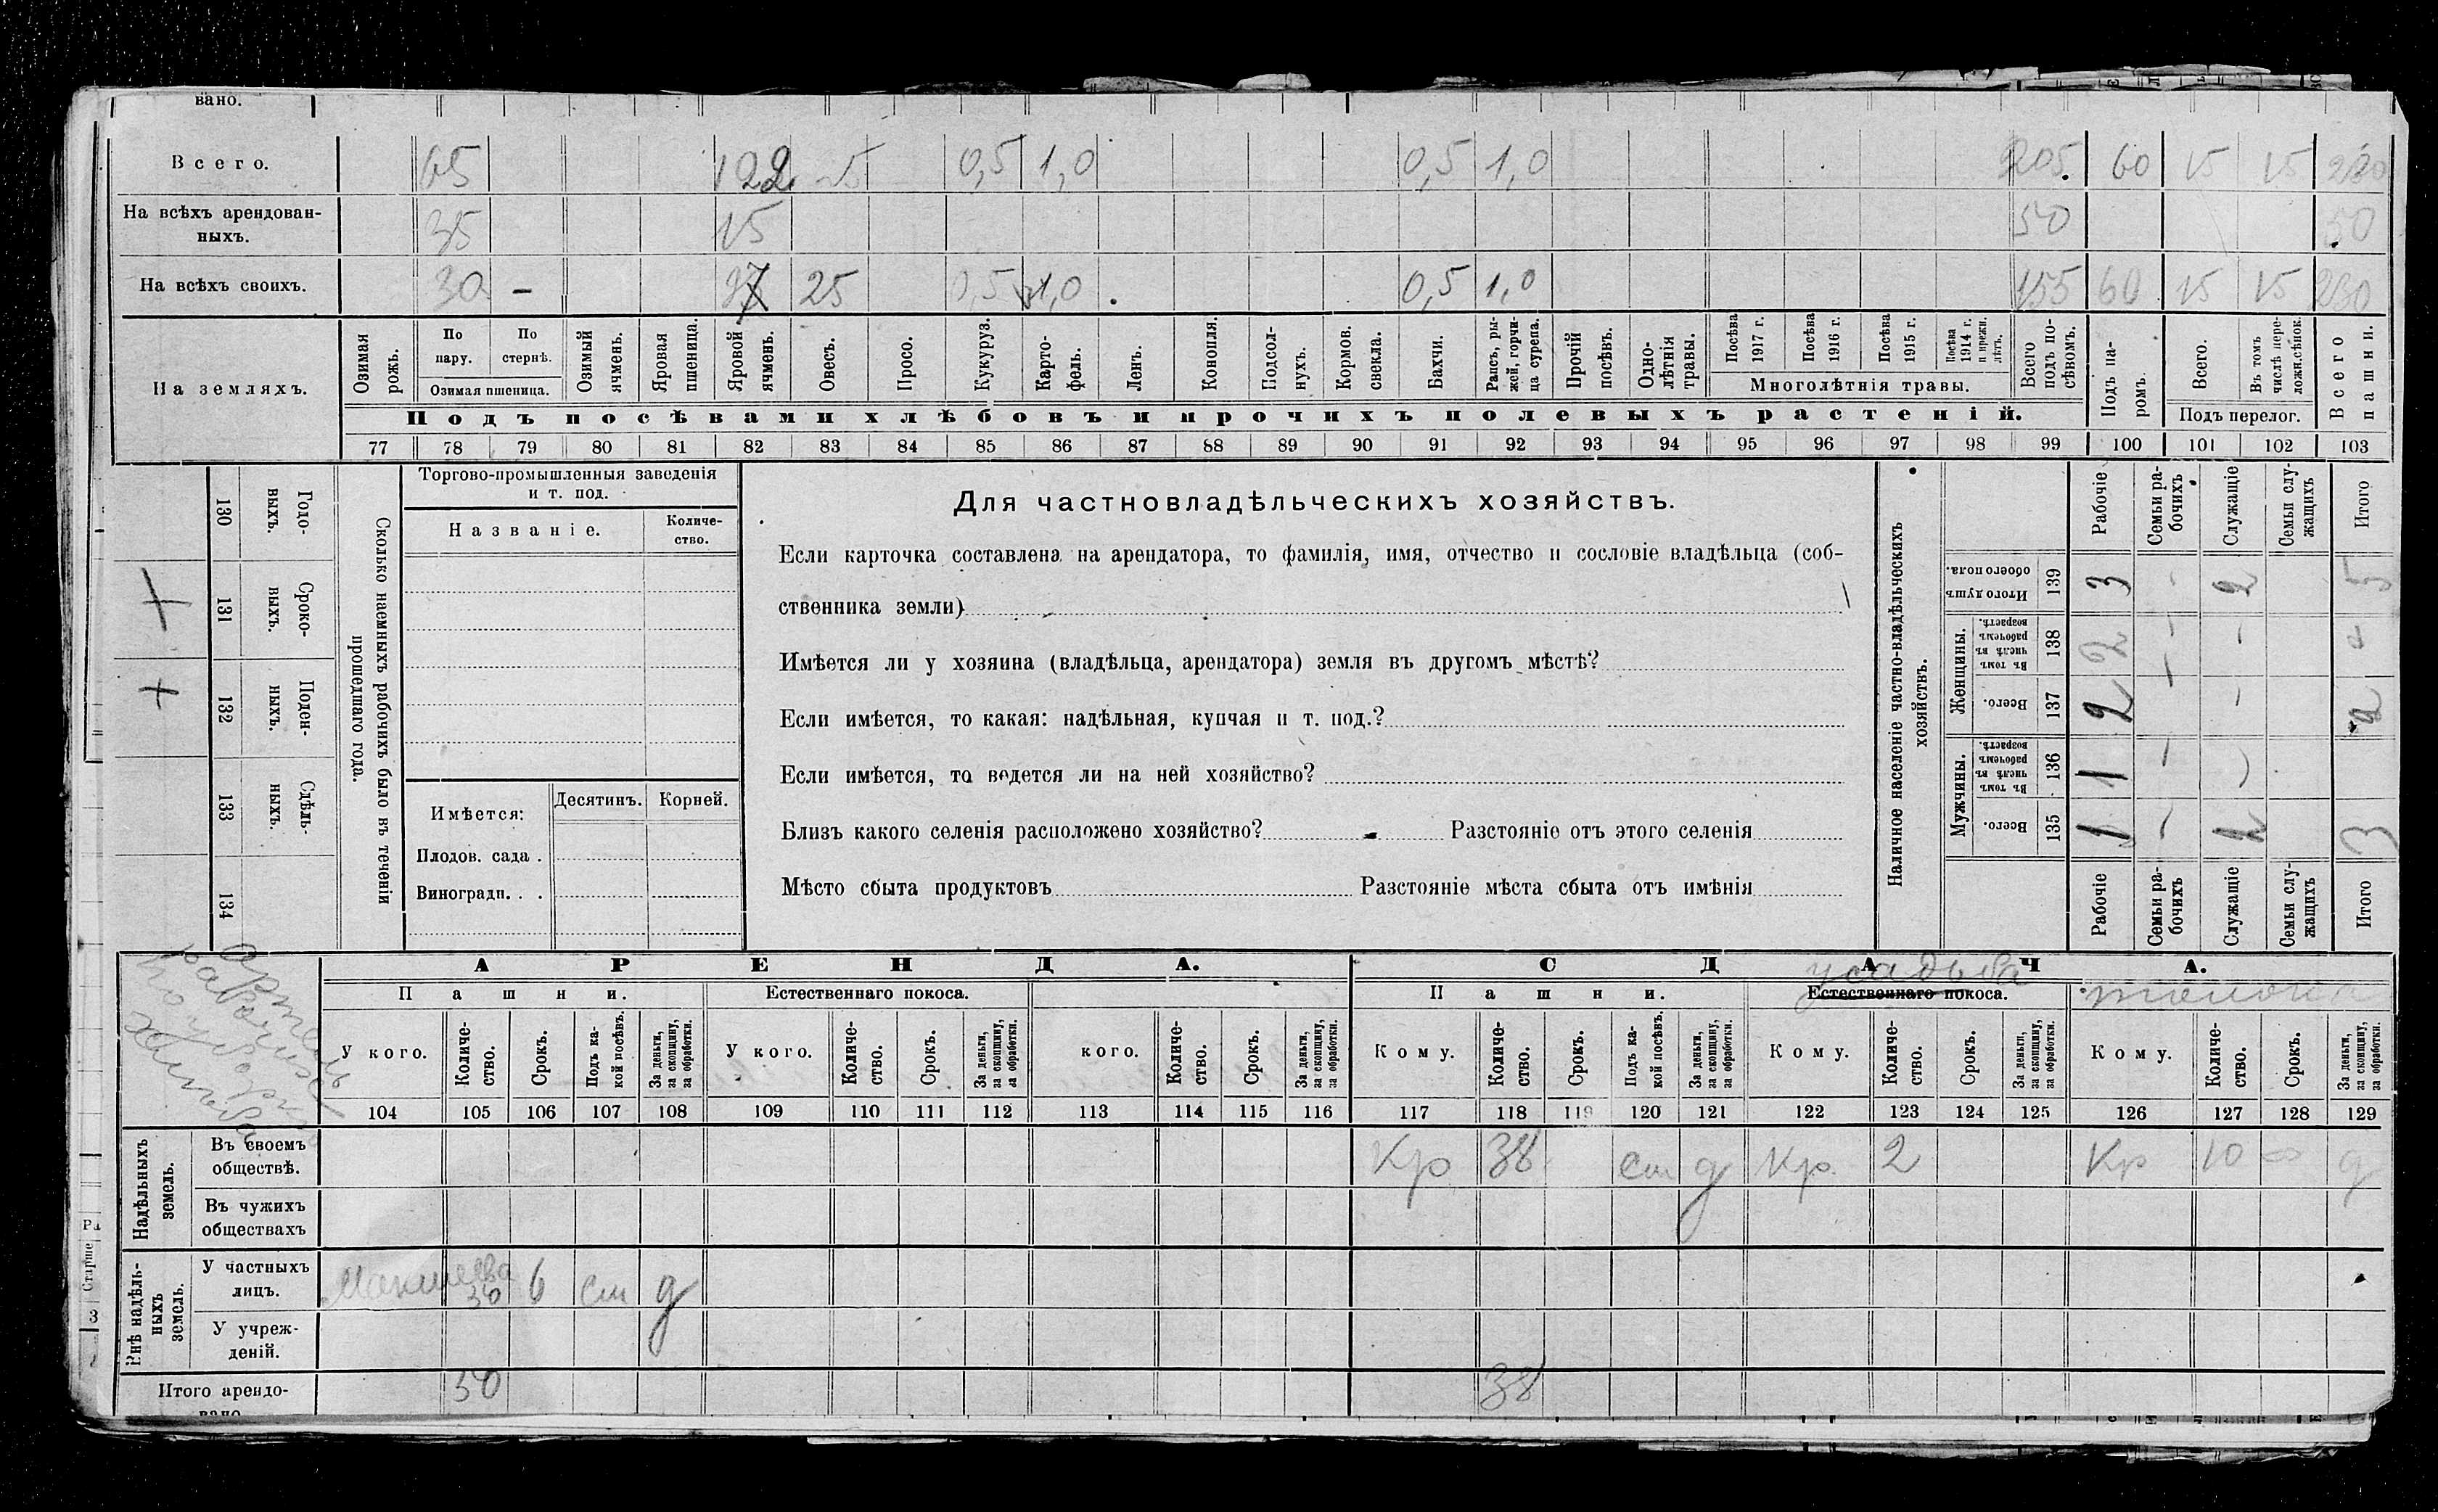 вано.
Всего. 65 122 25 0,5 1,0 0,5 1,0 205 60 15 15 280
На всѣхъ арендован-
ныхъ. 35 15 50 50
На всѣхъ своихъ. 30 - 25 0,5 1,0 0,5 1,0 155 60 15 15 230
На земляхъ.
Озимая рожь.
По пару.
По стернѣ.
Озимая пшеница.
Озимый ячмень.
Яровая пшеница.
Яровой ячмень.
Овесъ.
Просо.
Кукуруз.
Карто-
фель.
Ленъ.
Конопля.
Подсол-
нухъ.
Кормов. свекла.
Бахчи.
Рапсъ, ры-
жей, горчи-
ца сурепа.
Прочій посѣвъ.
Одно-
лѣтнія травы.
Посѣва 1917 г.
Посѣва 1916 г.
Посѣва 1915 г.
Посѣва 1914 г. и прежн. лѣтъ.
Многолѣтнія травы.
Всего подъ по-
сѣвомъ.
Подъ па-
ромъ.
Всего.
Въ томъ числѣ пере-
ложн.сѣнок.
Подъ перелог.
Всего пашни.
Подъ посѣвами хлѣбовъ и прочихъ полевыхъ растеній.
77 78 79 80 81 82 83 84 85 86 87 88 89 90 91 92 93 94 95 96 97 98 99 100 101 102 103
Сколько наемныхъ рабочихъ было въ теченіи
прошедшаго года.
Годо-
выхъ. 130
Сроко-
ныхъ. 131 +
Поден-
ныхъ. 132 +
Сдѣль-
ныхъ. 133
134
Торгово-промышленныя заведенія
и т. под.
Названіе. Количе-
ство.
Имѣется: Десятинъ. Корней.
Плодов. сада .
Виноградн. . .
Для частновладѣльческихъ хозяйствъ.
Если карточка составлена на арендатора, то фамилія, имя, отчество и сословіе владѣльца (соб-
ственника земли)
Имѣется ли у хозяина (владѣльца, арендатора) земля въ другомъ мѣстѣ?
Если имѣется, то какая: надѣльная, купчая и т. под.?
Если имѣется, то ведется ли на ней хозяйство?
Близъ какого селенія расположено хозяйство? Разстояніе отъ этого селенія
Мѣсто сбыта продуктовъ Разстояніе мѣста сбыта отъ имѣнія
Наличное населеніе частно-владѣльческихъ
хозяйствъ.
Рабочіе Семьи ра-
бочихъ Служащіе Семьи слу-
жащихъ Итого
Итого душ обоего пола. 139 3 - 2 5
Женщины.
Въ томъ числѣ въ рабочемъ возрастѣ. 138 2 - - 2
Всего. 137 2 - - 2
Мужчины.
Въ томъ числѣ въ рабочемъ возрастѣ. 136 1 -
Всего. 135 1 - 2 3
Рабочіе Семьи ра-
бочихъ Служащіе Семьи слу-
жащихъ Итого
Артель
рабочихъ
АРЕНДА. СДАЧА.
усадьба
Пашни. Естественнаго покоса. Пашни. Естественнаго покоса. толока
У кого. Количе-
ство. Срокъ. Подъ ка-
кой посѣвъ. За деньги, за скопщину, за обработки.
У кого. Количе-
ство. Срокъ. За деньги, за скопщину, за обработки.
кого. Количе-
ство. Срокъ. За деньги, за скопщину, за обработки.
Кому. Количе-
ство. Срокъ. Подъ ка-
кой посѣвъ. За деньги, за скопщину, за обработки.
Кому. Количе-
ство. Срокъ. За деньги, за скопщину, за обработки.
Кому. Количе-
ство. Срокъ. За деньги, за скопщину, за обработки.
104 105 106 107 108 109 110 111 112 113 114 115 116 117 118 119 120 121 122 123 124 125 126 127 128 129
Надѣльныхъ
земель.
Въ своемъ
обществѣ. Кр 38 д Кр. 2 Кр 10 д
Въ чужихъ
обществахъ
Внѣ надѣль-
ныхъ
земель.
У частныхъ
лицъ. 6 д
У учреж-
деній.
Итого арендо-
вано 50 38
Старше
3